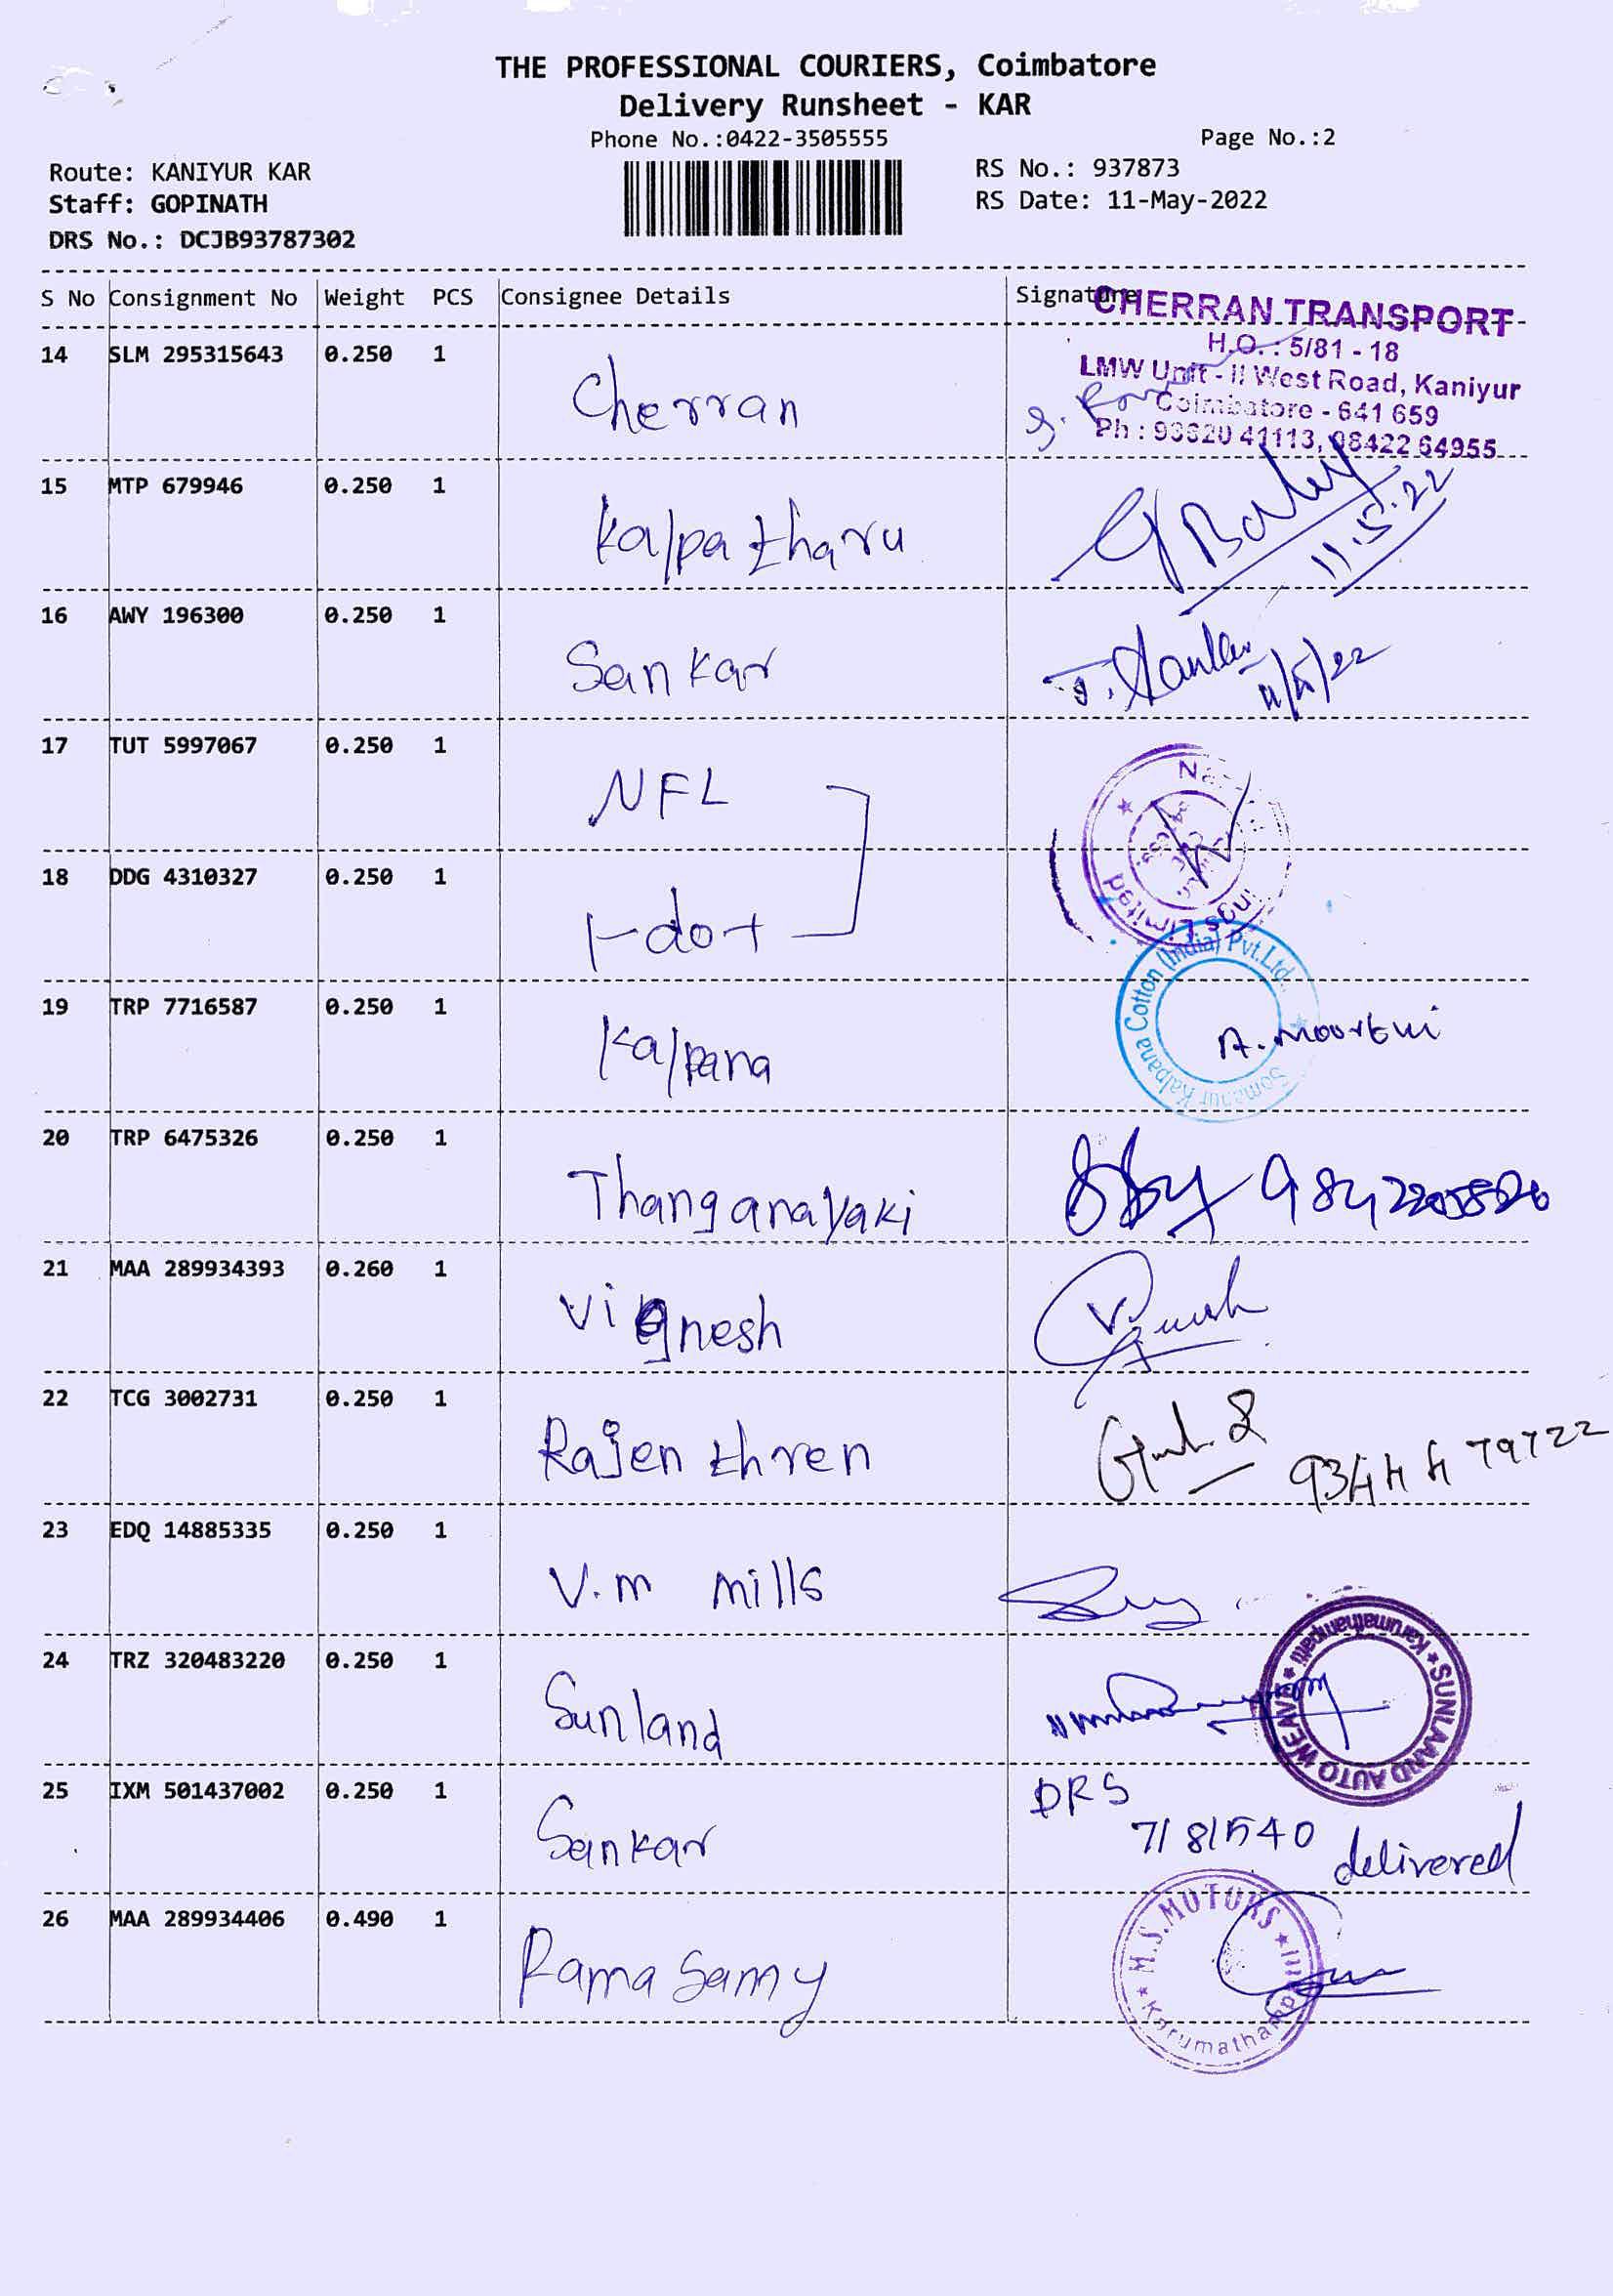 THE PROFESSIONAL COURIERS, Coimbatore
Delivery Runsheet - KAR
Phone No.:0422-3505555 Page No.:2
Route: KANIYUR KAR RS No.: 937873
Staff: GOPINATH RS Date: 11-May-2022
DRS No.: DCJB93787302
S No Consignment No Weight PCS Consignee Details Signature
CHERRAN TRANSPORT
H.O. : 5/81 - 18
LMW Unit - II West Road, Kaniyur
Coimbatore - 641 659
Ph : 41113, 98422 64955
14 SLM 295315643 0.250 1 Cherran
15 MTP 679946 0.250 1 Kalpatharu 11.5.22
16 AWY 196300 0.250 1 Sankar 11/5/22
17 TUT 5997067 0.250 1 NFL
18 DDG 4310327 0.250 1 t-dot
Limited
19 TRP 7716587 0.250 1 Kalpana A. Moorthi
Kalpana Cotton (India) Pvt.Ltd.
Somanur
20 TRP 6475326 0.250 1 Thanganayaki
21 MAA 289934393 0.260 1 Vignesh
22 TCG 3002731 0.250 1 Rajenthren 9344479722
23 EDQ 14885335 0.250 1 V.m mills
24 TRZ 320483220 0.250 1 Sunland
SUNLAAND AUTO WEAVE * Karumathampatti *
25 IXM 501437002 0.250 1 Sankar DRS
7181540 delivered
26 MAA 289934406 0.490 1 Rama Samy
M.S.MOTORS